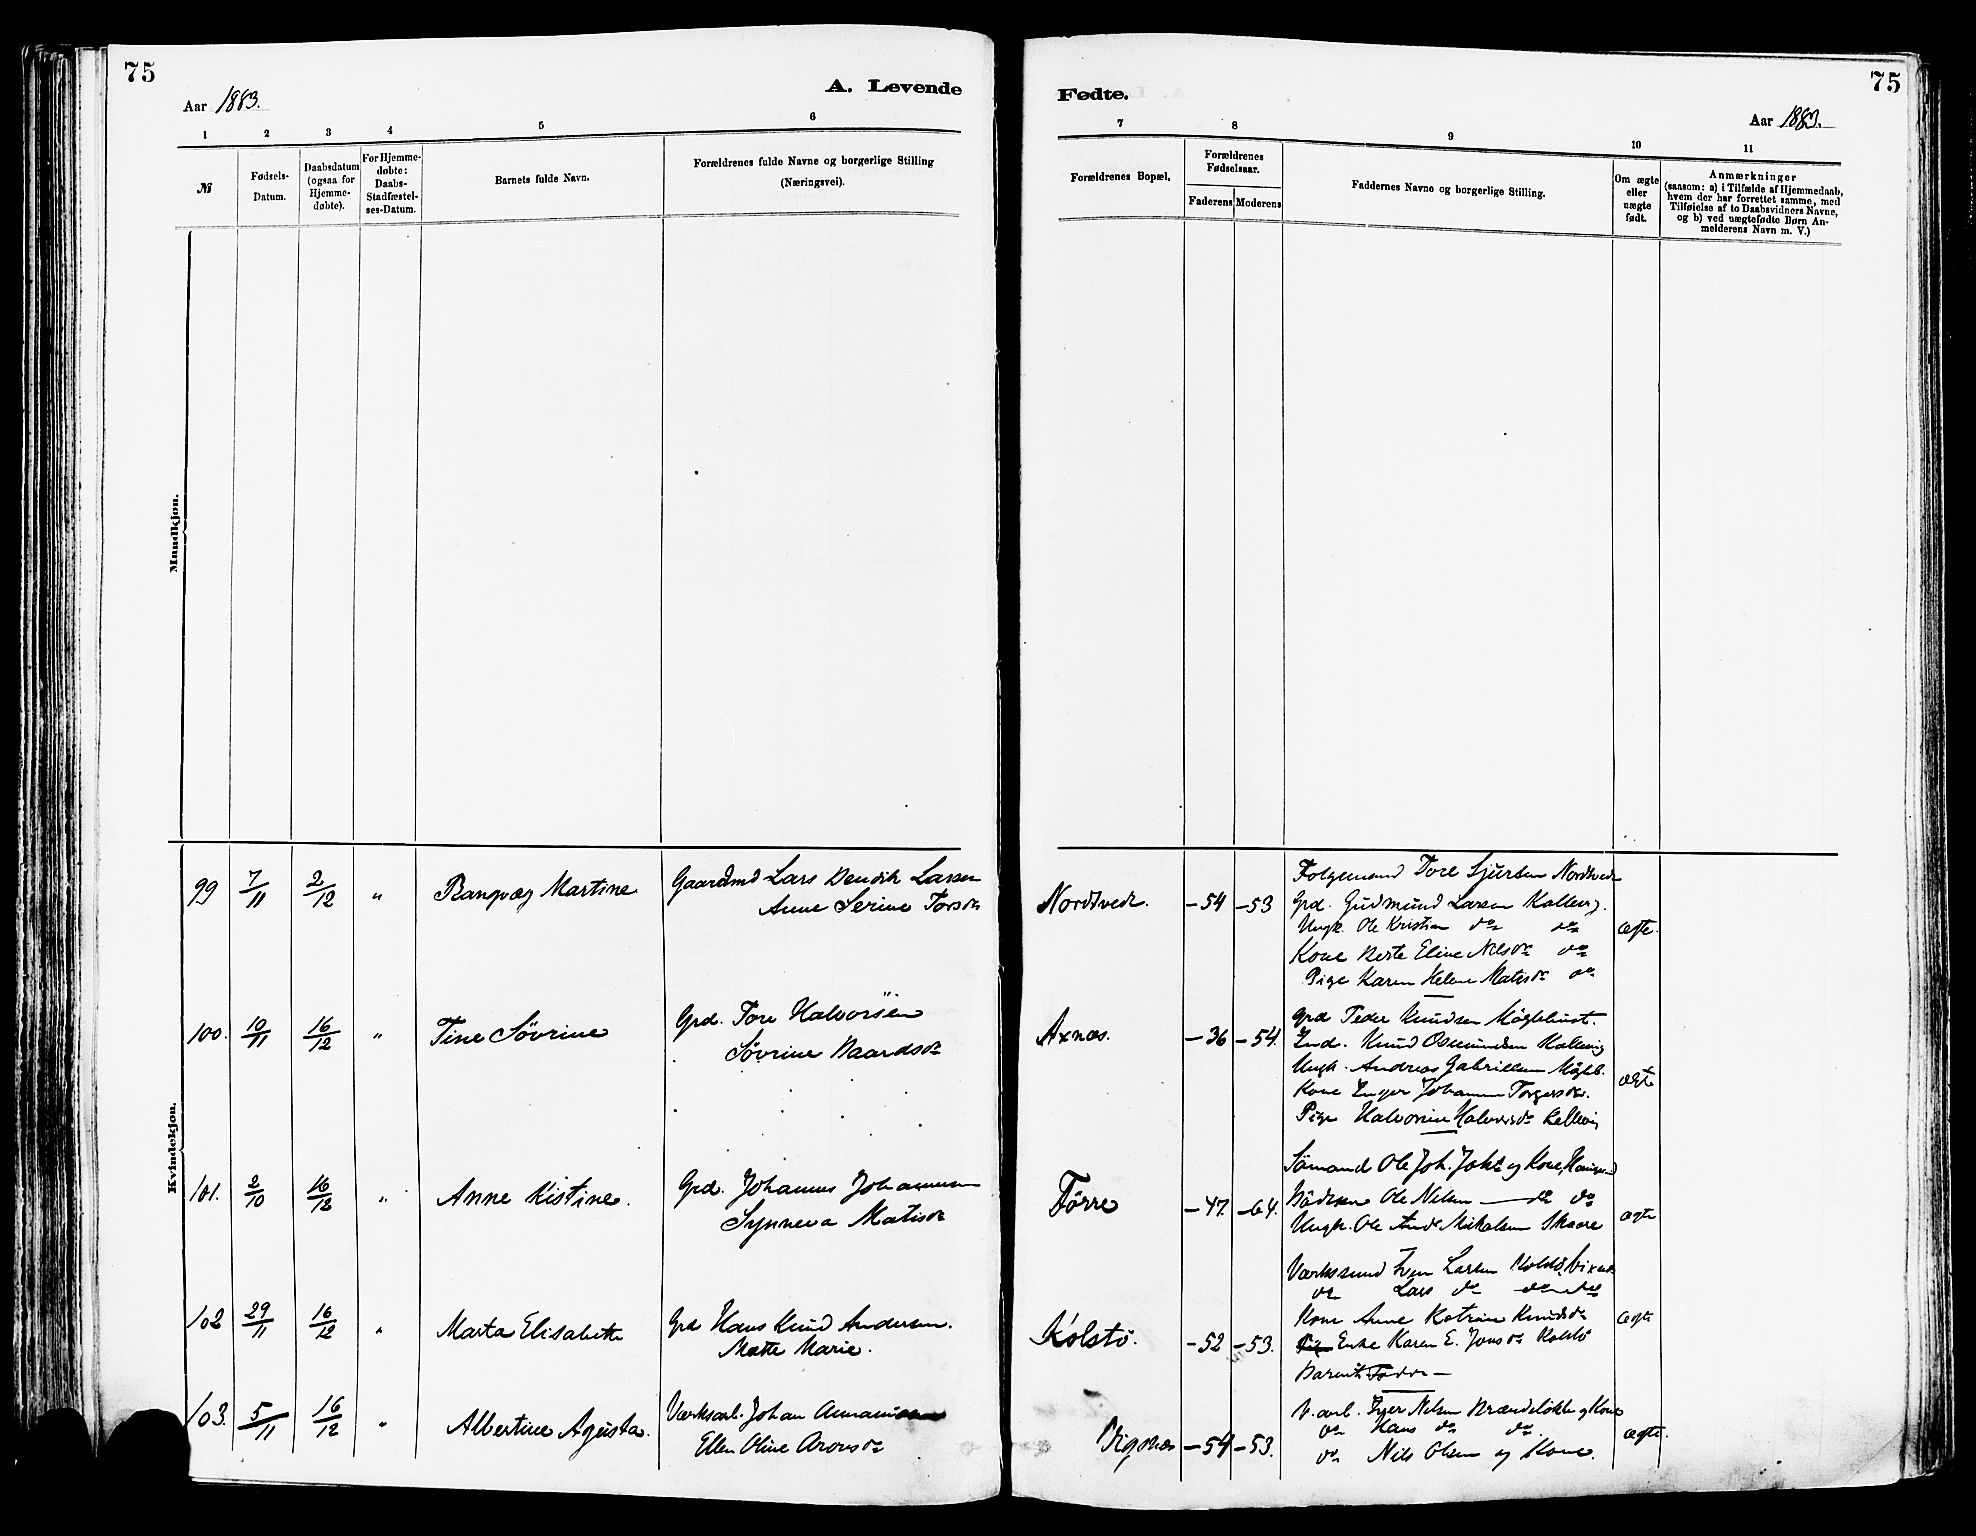 75
Aar 1883.
A. Levende
1 2 3 4 5 6
№
Fødsels-Datum.
Daabsdatum (ogsaa for Hjemme-døbte).
For Hjemme-døbte: Daabs-Stadfæstel-ses-Datum.
Barnets fulde Navn.
Forældrenes fulde Navne og borgerlige Stilling
(Næringsvei).
Mandkjøn.
Kvindekjøn.
99 7/11 2/12 " Rangvæg Martine Gaardmd Lars Bendik Larsen
Anne Serine Torsdr
100. 10/11 16/12 " Tine Sövrine Grd. Tore Halvorsen
Sövrine Baardsdr
101. 2/10 16/12 " Anne Kistine. Grd. Johannes Johannesen
Synneva Matisdr
102 29/11 16/12 " Marta Elisabeth Grd Hans Knud Andersen.
Mette Marie.
103. 5/11 16/12 " Albertine Agusta. Værksarb. Johan
Ellen Oline Aronsdr
Fødte.
75
Aar 1883.
7 8 9 10 11
Forældrenes Bopæl.
Forældrenes Fødselsaar.
Faderens Moderens
Faddernes Navne og borgerlige Stilling.
Om ægte eller uægte født.
Anmærkninger
(saasom: a) i Tilfælde af Hjemmedaab,
hvem der har forrettet samme, med
Tilføielse af to Daabsvidners Navne,
og b) ved uægtefødte Børn An-
melderens Navn m. V.)
Nordtvedt. -54 -53
Folgemand Tore Sjursen Nordtvedt
Grd. Gudmund Larsen Kallevig.
Ungk. Ole Kristian do do
ægte.
Kone Berte Eline Nilsdr do
Pige Karen Helene Matisdr do
Axnæs. -36 -54.
Grd Peder Knudsen
Ind. Knud Osmundsen Kallevig
Ungk. Andreas Gabrielsen
ægte
Kone Inger Johanne Torgersdr.
Pige Halvorine Halvorsdr Kallevig
Förre -47. -64.
Sömand Ole Joh. og Kone,
Ole Nilsen — do do
Ungk. Ole And. Mikalsen Skaare
ægte
Kolstö. -52 -53.
Iver Larsen Kolstö,
do Lars do do
Kone Anne Katrine Knudsdr
ægte
Enke Karen E. Jonsdr Kolstö
Barnets Fader —
Vigsnæs -54 -53.
V. arb. Iver Nilsen og Kone
do Hans do do
ægte.
do Nils Olsen og Kone.